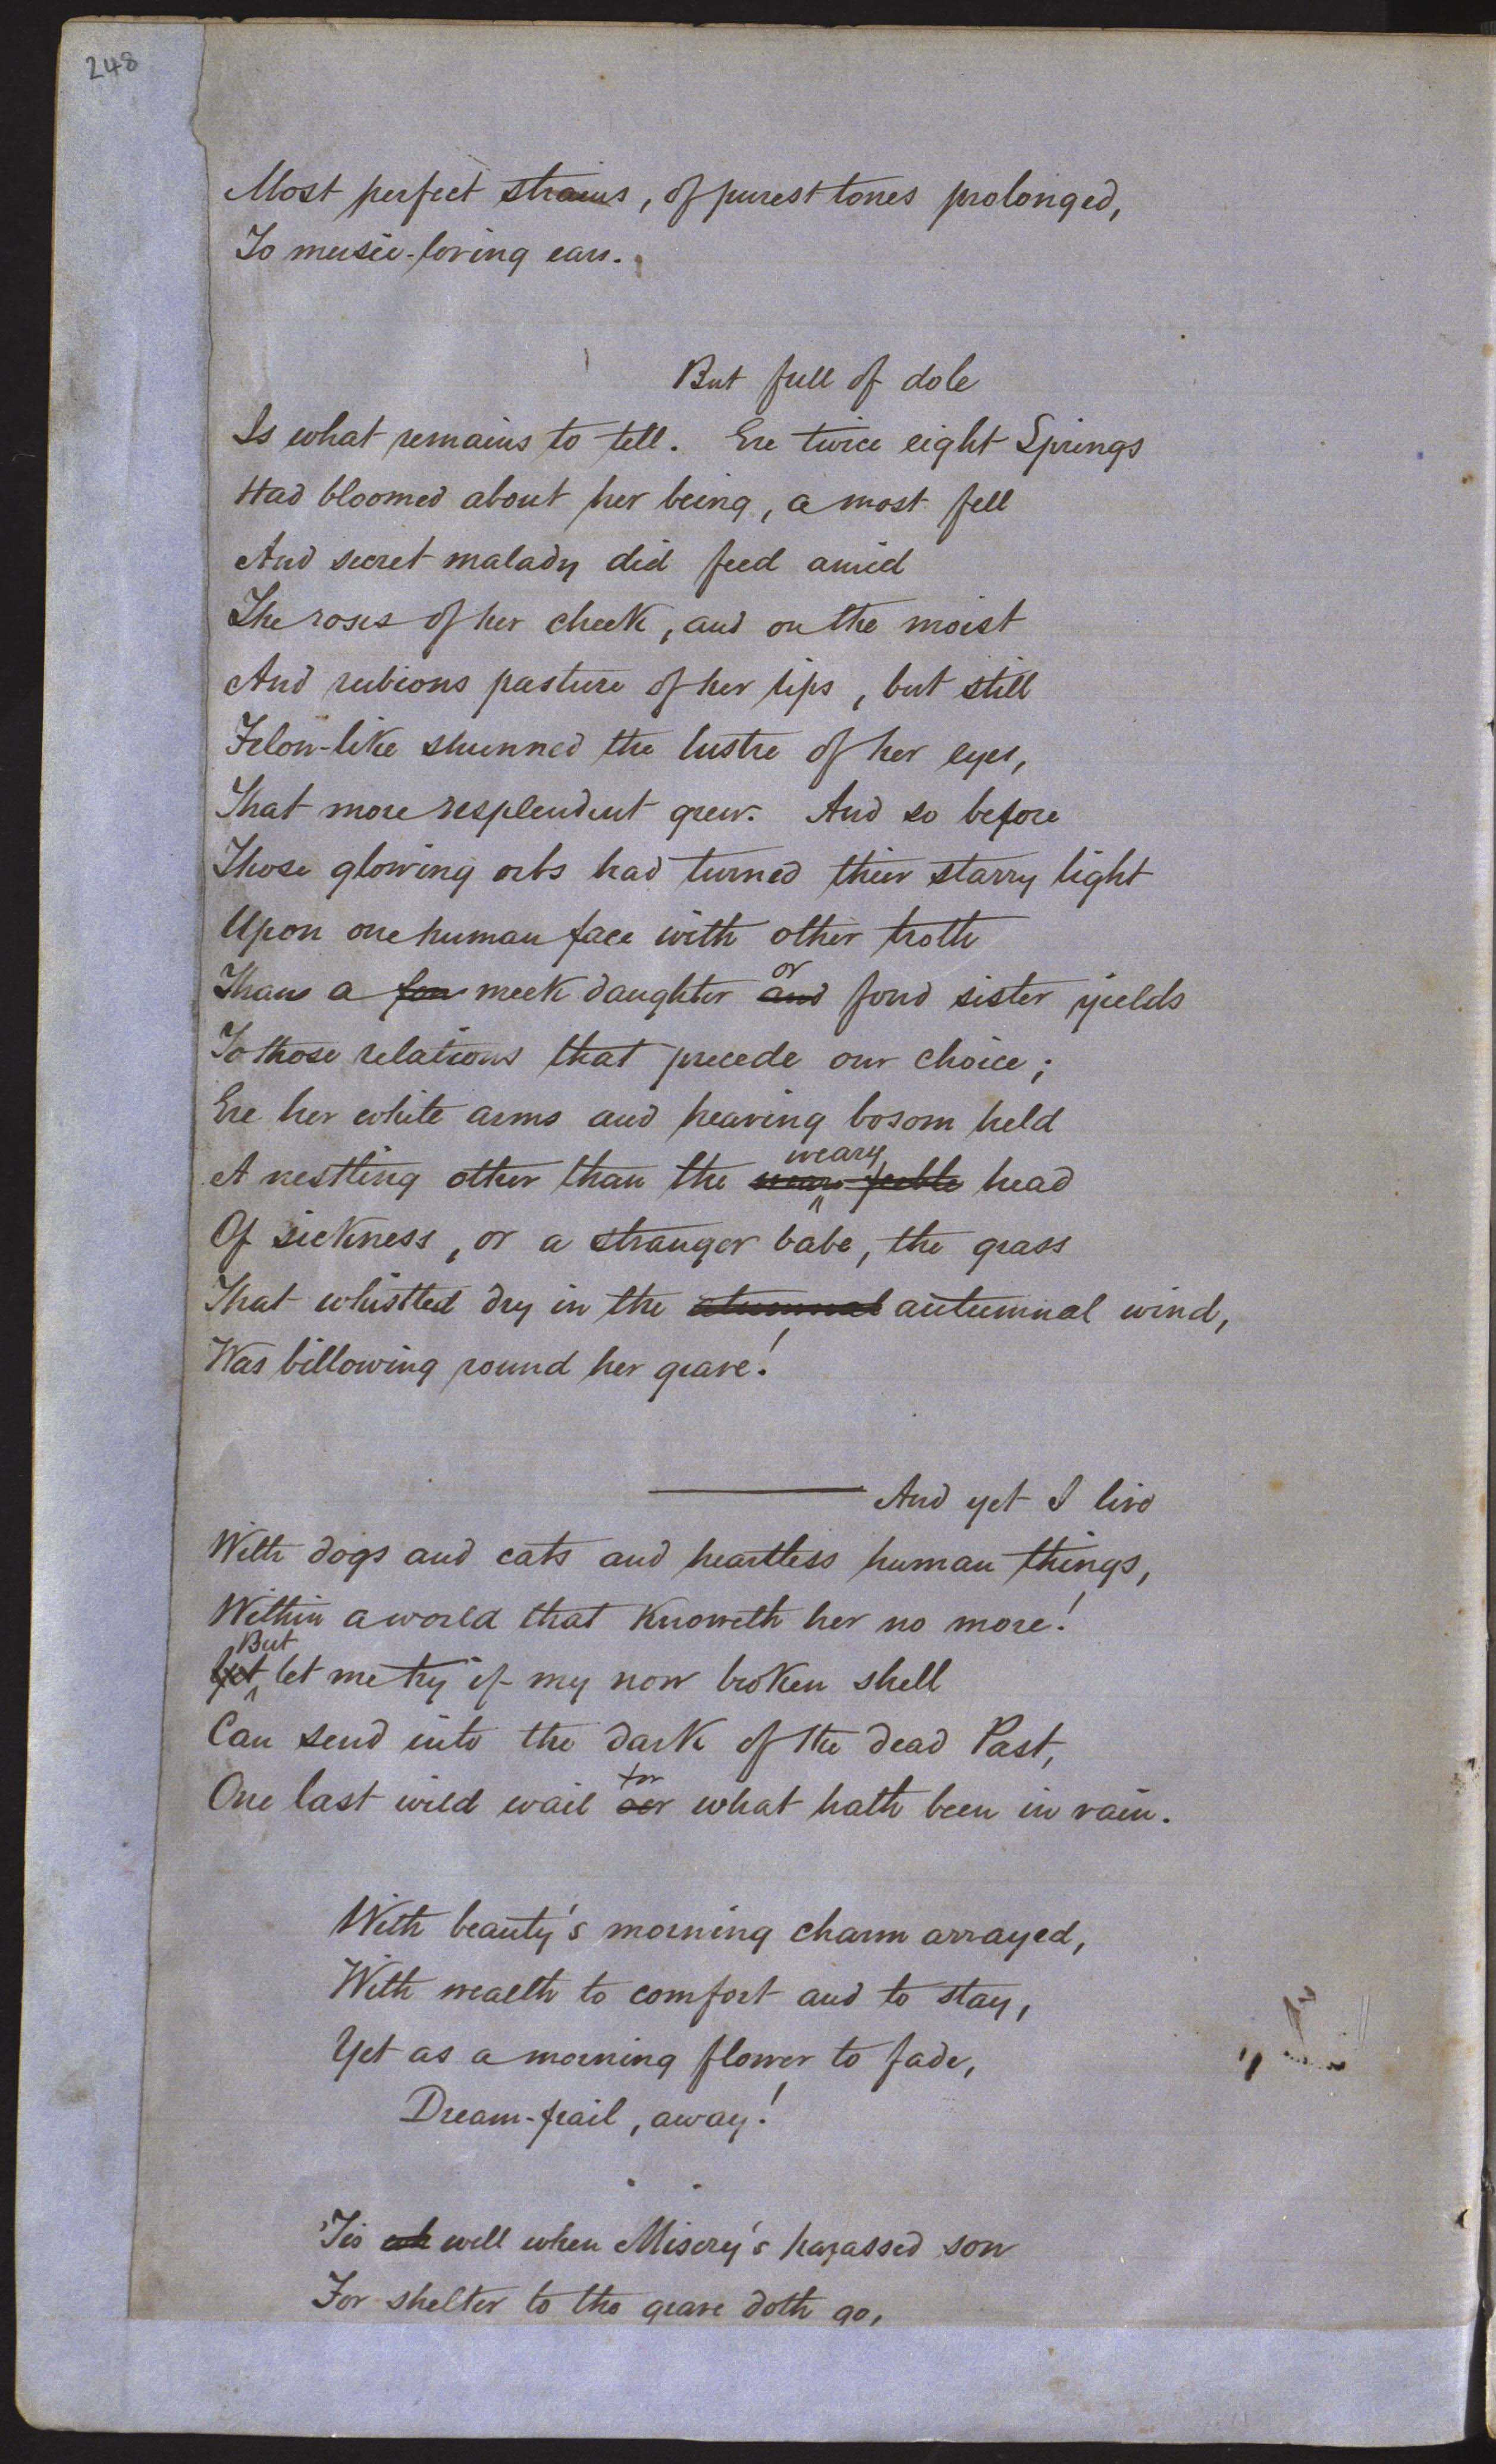 248
Most perfect strains, of purest tones prolonged,
To music-loving ears.
But full of dole
Is what remains to tell. Ere twice eight Springs
Had bloomed about her being, a most fell
And secret malady did feed amid
The roses of her cheek, and on the moist
And rubious pasture of her lips, but still
Felon-like shunned the lustre of her eyes,
That more resplendent grew. And so before
Those glowing orbs had turned thier starry light
Upon one human face with other troth
or
Than a fon meek daughter and fond sister yields
To those relations that precede our choice;
Ere her white arms and heaving bosom held
weary
A nestling other than the feeble head
Of sickness, or a stranger babe, the grass
That whistled dry in the atumnal autumnal wind,
Was billowing round her grave!
And yet I live
With dogs and cats and heartless human things,
Within a world that knoweth her no more!
But
Yet let me try if my now broken shell
Can send into the dark of the dead Past,
for
One last wild wail oer what hath been in vain.
With beauty's morning charm arrayed,
With wealth to comfort and to stay,
Yet as a morning flower to fade,
Dream-frail, away!
'Tis well when Misery's harassed son
For shelter to the grave doth go,